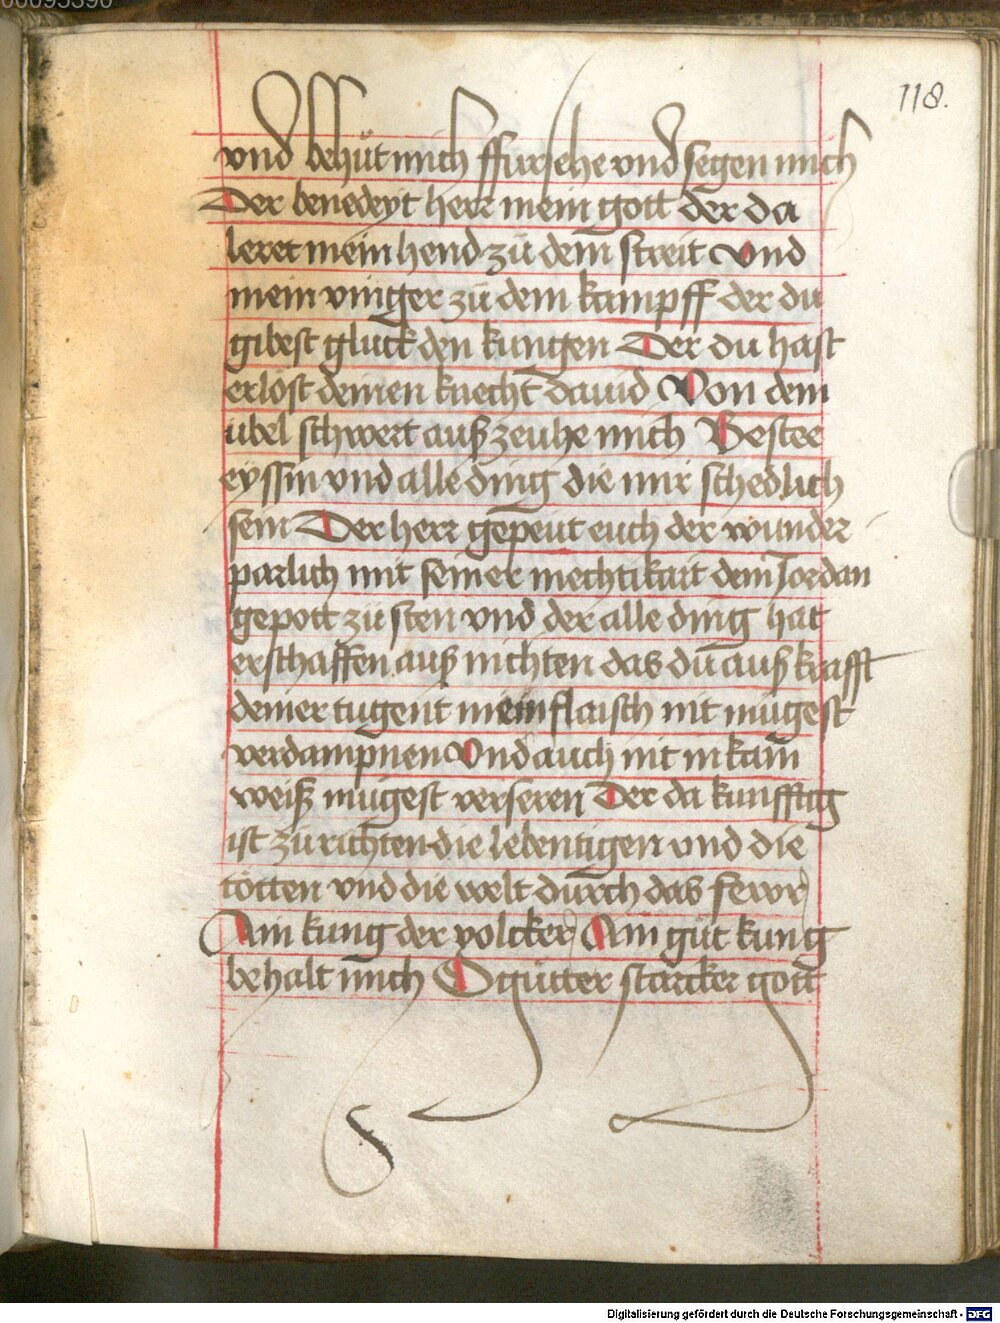 00095390
118.
vnd behüt mich ffursehe vnd segen mich
Der benedeyt herr mein gott der da
leret mein hend zü dem streit Vnd
mein vinger zü dem kampff der du
gibest gluck den kungen Der du hast
erlöst deinen knecht dauid Von dem
übel schwert auß zeuhe mich Vester
eyssin vnd alle ding die mir schedlich
sein Der herr gepeut euch der wunder
parlich mit seiner mechtikait dem Jordan
gepott zü sten vnd der alle ding hat
erschaffen auß nichten das du auß krafft
deiner tugent mein flaisch nit mügest
verdampnen Vnd auch nit in kam
weiß mügest verseren Der da kunfftig
ist zü richten die lebentigen vnd die
tötten vnd die welt durch das fewr
Ain kung der volcker Ain güt kung
behalt mich O gütter starcker gott
Digitalisierung gefördert durch die Deutsche Forschungsgemeinschaft - DFG